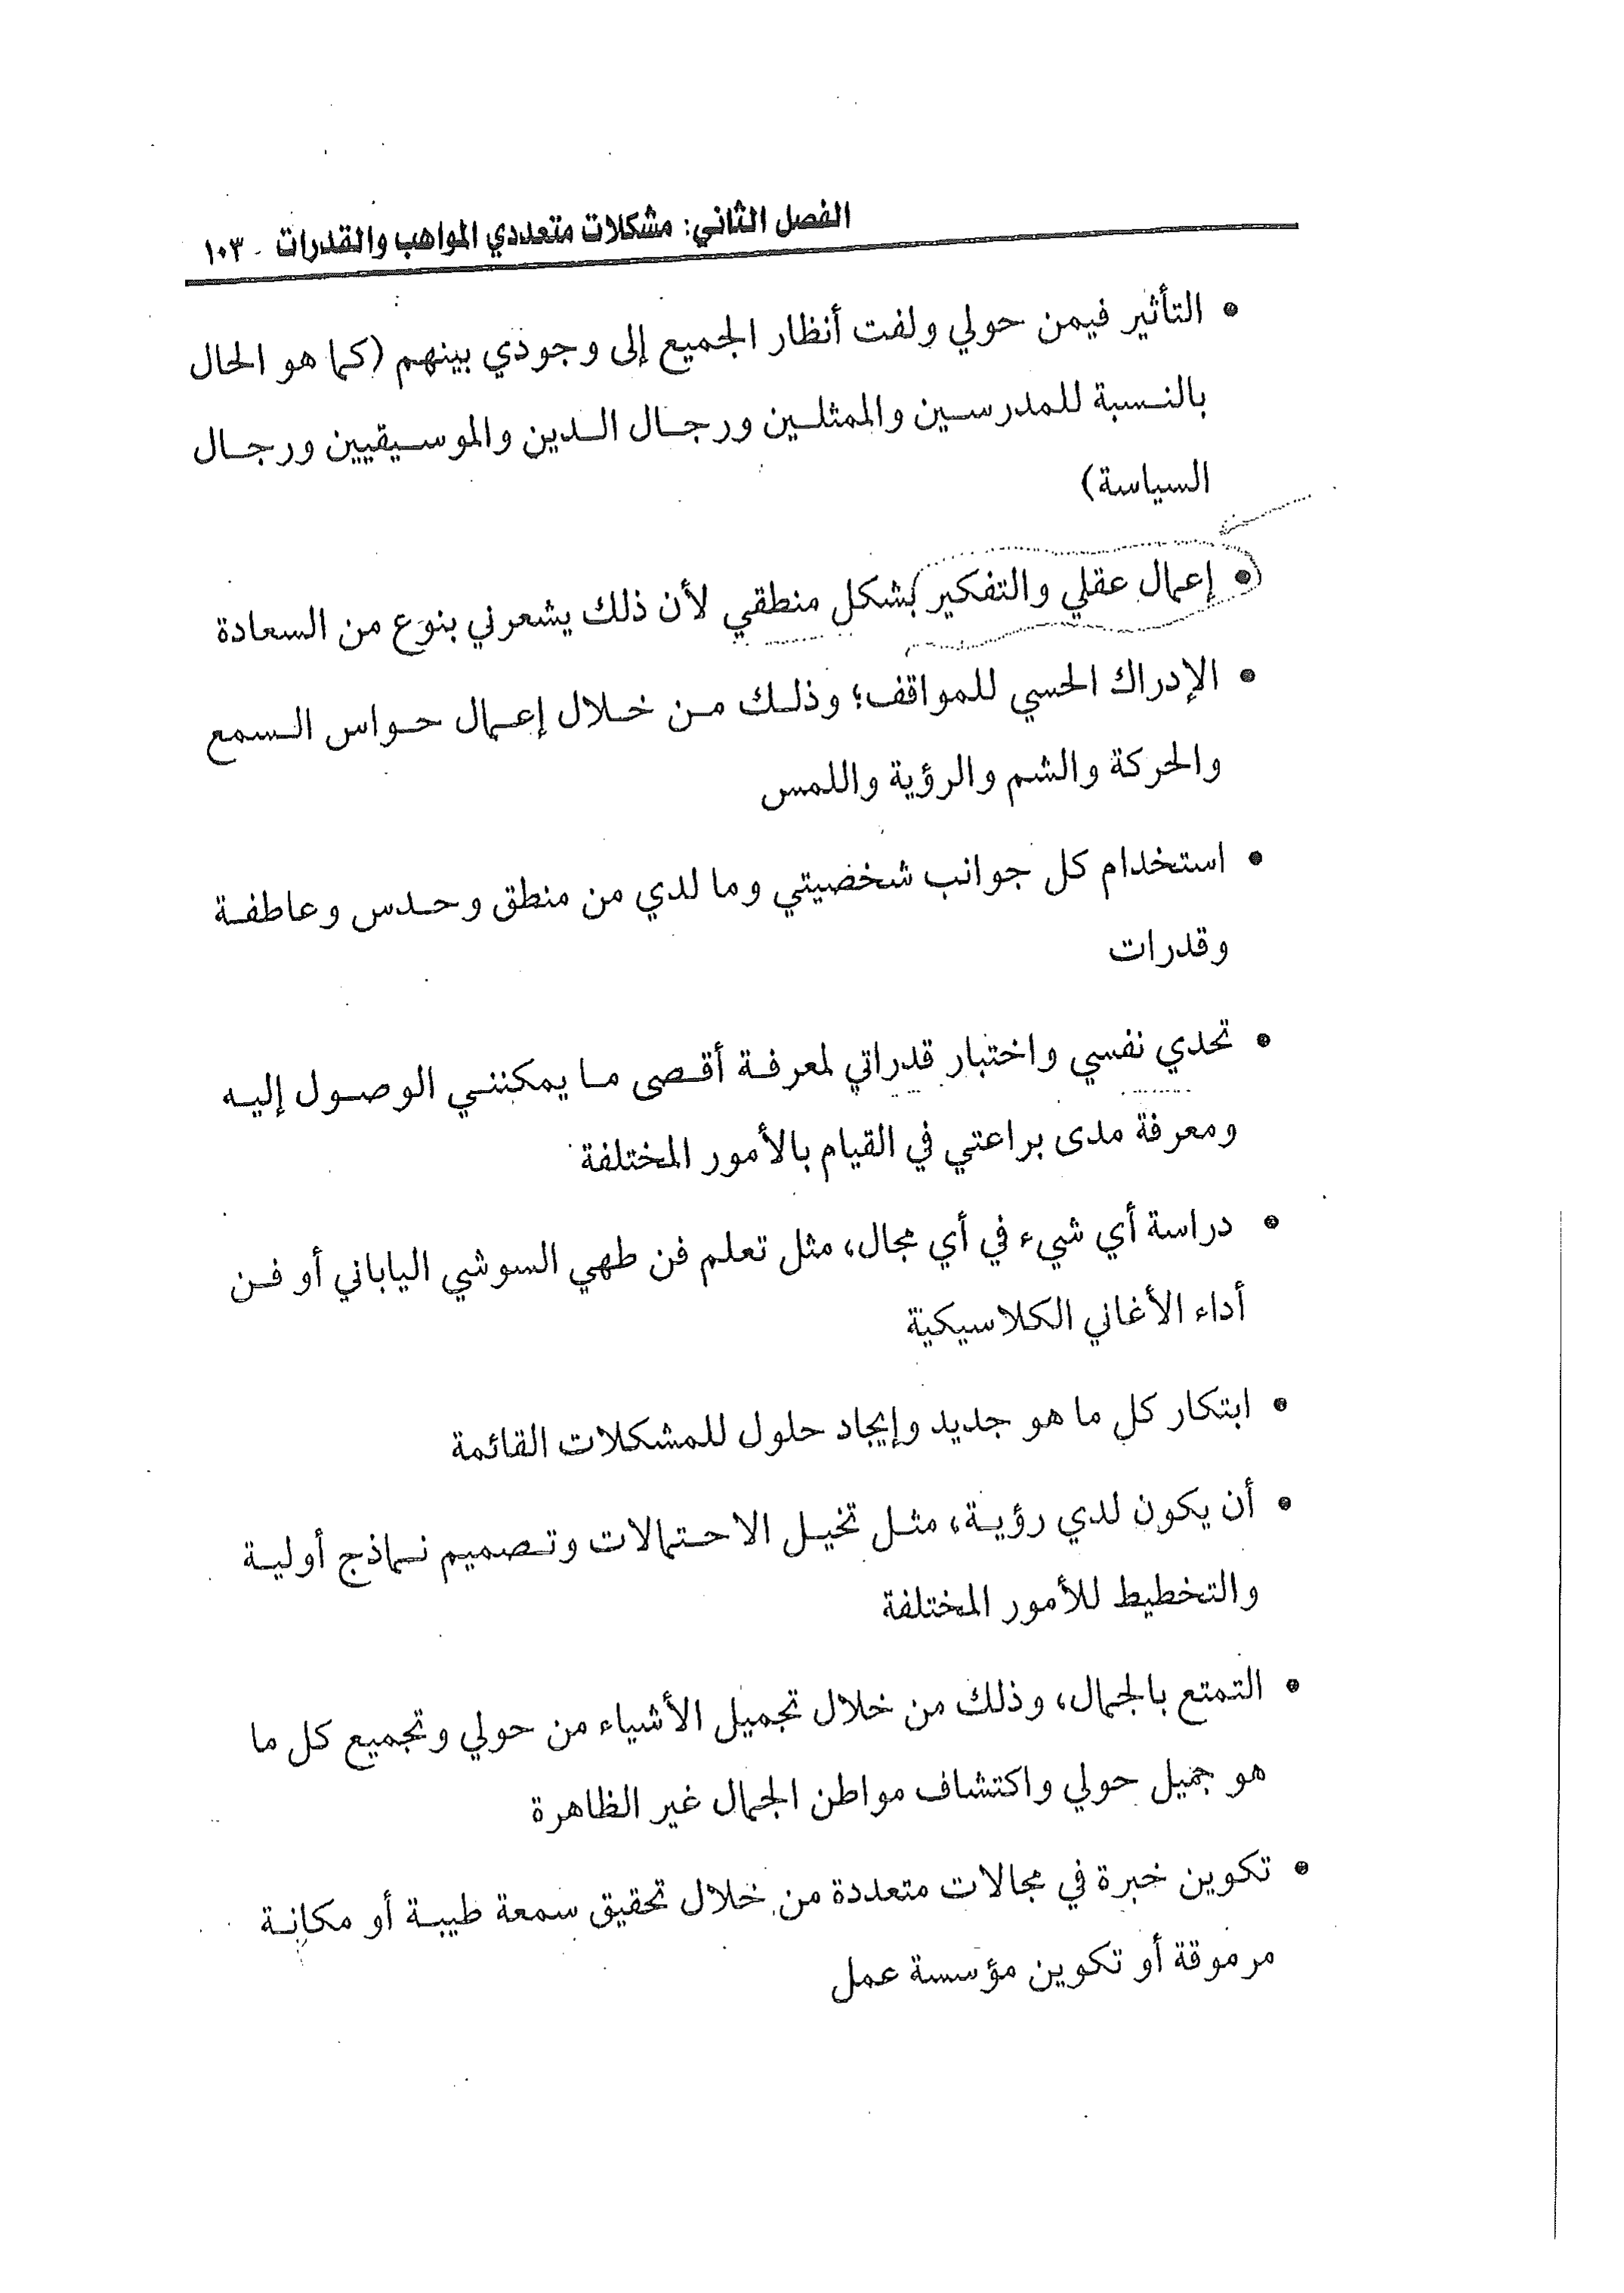 الفصل الثاني: مشكلات متعددي المواهب والقدرات - ١٠٣
• التأثير فيمن حولي ولفت أنظار الجميع إلى وجودي بينهم (كما هو الحال
بالنسبة للمدرسين والممثلين ورجال الدين والموسيقيين ورجال
السياسة)
• إعمال عقلي والتفكير بشكل منطقي لأن ذلك يشعرني بنوع من السعادة
• الإدراك الحسي للمواقف؛ وذلك من خلال إعمال حواس السمع
والحركة والشم والرؤية واللمس
• استخدام كل جوانب شخصيتي وما لدي من منطق وحدس وعاطفة
وقدرات
• تحدي نفسي واختبار قدراتي لمعرفة أقصى ما يمكنني الوصول إليه
ومعرفة مدى براعتي في القيام بالأمور المختلفة
• دراسة أي شيء في أي مجال، مثل تعلم فن طهي السوشي الياباني أو فن
أداء الأغاني الكلاسيكية
• ابتكار كل ما هو جديد وإيجاد حلول للمشكلات القائمة
• أن يكون لدي رؤية، مثل تخيل الاحتمالات وتصميم نماذج أولية
والتخطيط للأمور المختلفة
• التمتع بالجمال، وذلك من خلال تجميل الأشياء من حولي وتجميع كل ما
هو جميل حولي واكتشاف مواطن الجمال غير الظاهرة
• تكوين خبرة في مجالات متعددة من خلال تحقيق سمعة طيبة أو مكانة
مرموقة أو تكوين مؤسسة عمل